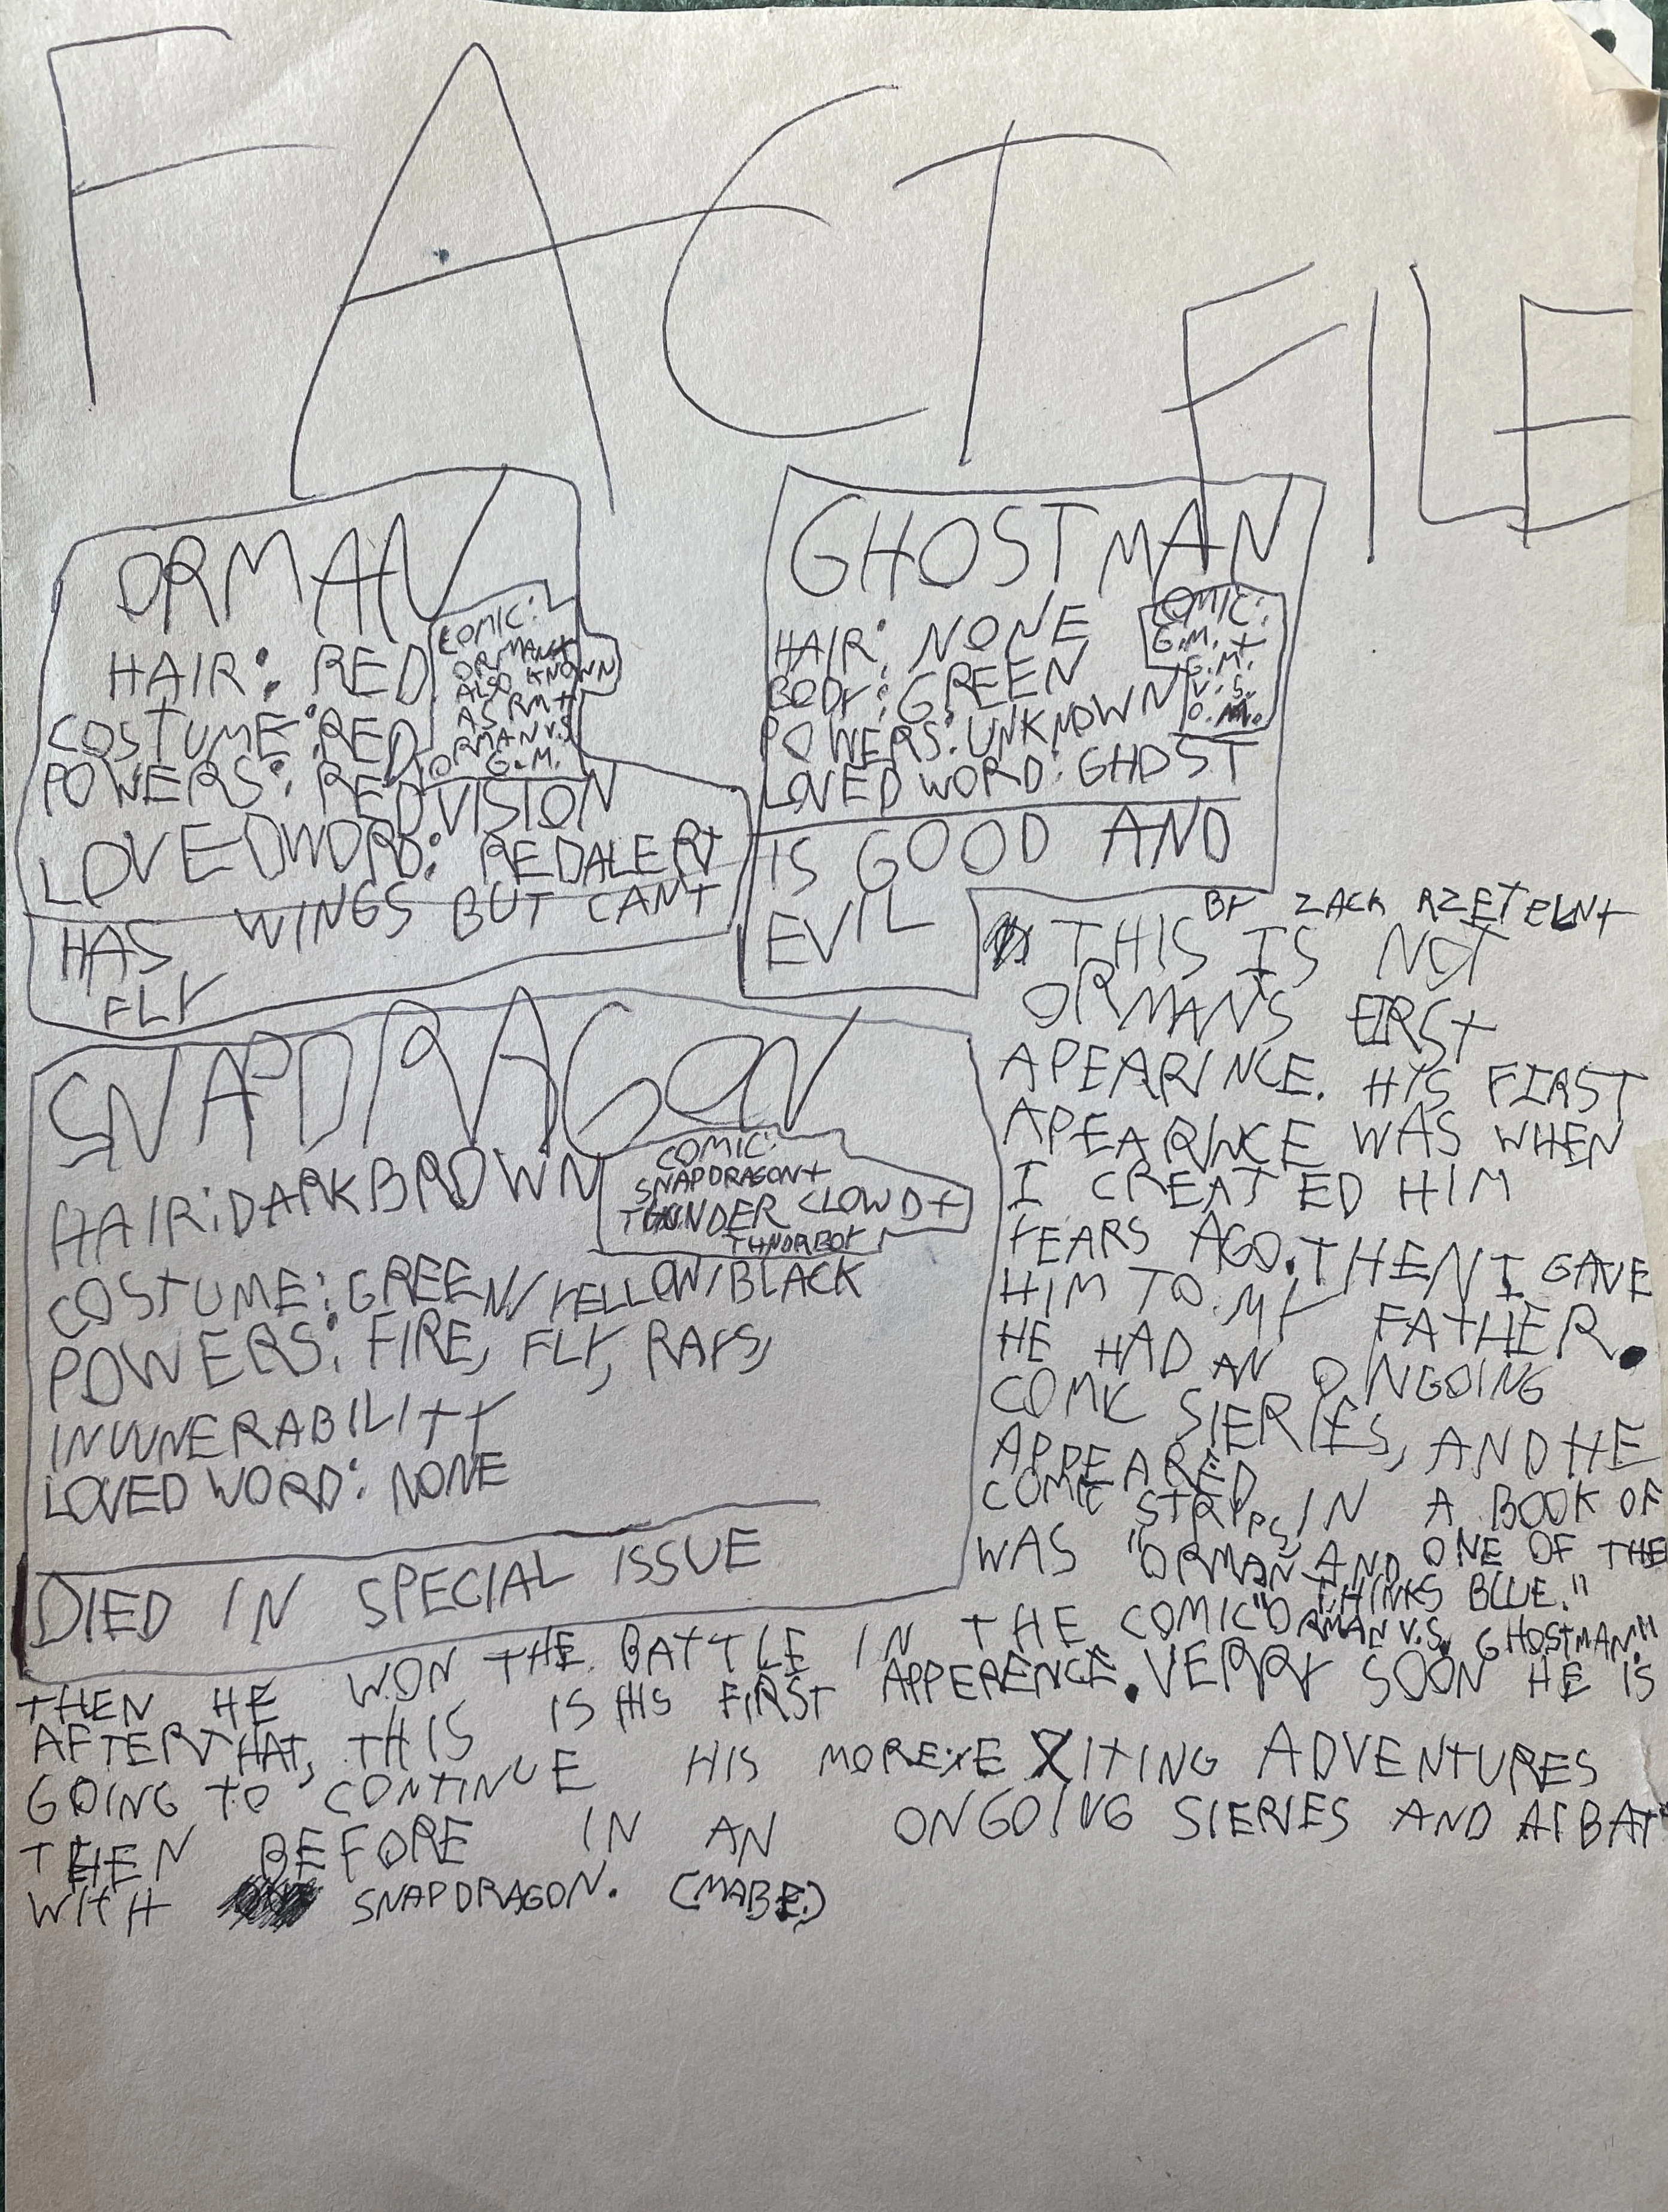 FACT FILE
ORMAN
HAIR: RED
COSTUME: RED
POWERS: RED VISION
LOVED WORD: RED ALERT
COMIC:
ORMAN+
ALSO KNOWN
AS RM+
ORMAN V.S
G.M.
HAS WINGS BUT CANT
FLY
GHOSTMAN
HAIR: NONE
BODY: GREEN
POWERS: UNKNOWN
LOVED WORD: GHOST
COMIC:
G.M.+
G.M.
V.S.
O.M.
IS GOOD AND
EVIL
SNAPDRAGON
HAIR: DARK BROWN
COMIC:
SNAPDRAGON+
THUNDER CLOWD+
THNDRBOY
COSTUME: GREEN/YELLOW/BLACK
POWERS: FIRE, FLY, RAYS,
INVUNERABILITY
LOVED WORD: NONE
DIED IN SPECIAL ISSUE
BY ZACK RZETELNY
THIS IS NOT
ORMAN'S FIRST
APEARINCE. HIS FIRST
APEARINCE WAS WHEN
I CREATED HIM
YEARS AGO. THEN I GAVE
HIM TO MY FATHER.
HE HAD AN ONGOING
COMIC SIERIES, AND HE
APPEARED IN A BOOK OF
COMIC STRIPS, ONE OF THE
WAS "ORMAN AND THINKS BLUE."
THEN HE WON THE BATTLE IN THE COMIC "ORMAN V.S. GHOSTMAN."
AFTER THAT, THIS IS HIS FIRST APPERENCE. VERRY SOON HE IS
GOING TO CONTINUE HIS MORE EXITING ADVENTURES
THEN BEFORE IN AN ONGOING SIERIES AND
WITH SNAPDRAGON. (MABE.)